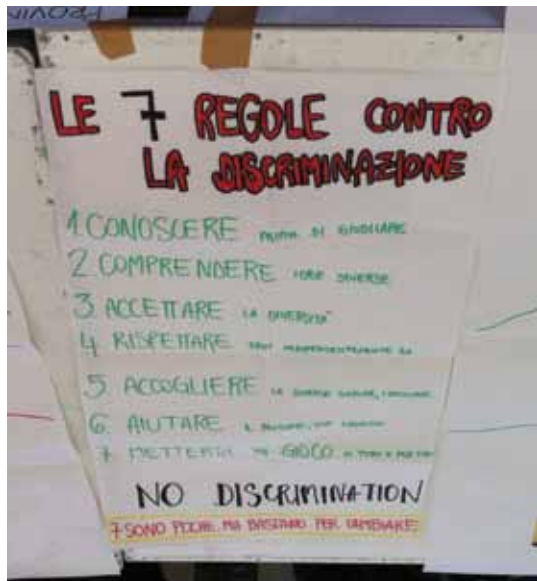 LE 7 REGOLE CONTRO
LA DISCRIMINAZIONE
1. CONOSCERE PRIMA DI GIUDICARE
2 COMPRENDERE IDEE DIVERSE
3. ACCETTARE LA DIVERSITÀ
4. RISPETTARE TUTTI INDIPENDENTEMENTE DA
5. ACCOGLIERE
6. AIUTARE IL PROSSIMO
7. METTERSI IN GIOCO
NO DISCRIMINATION
7 SONO POCHE, MA BASTANO PER CAMBIARE